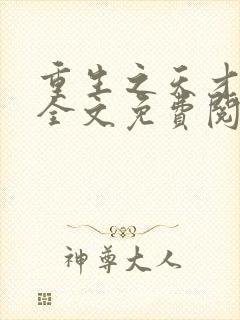 重生之天才
全文免費閱
神尊大人